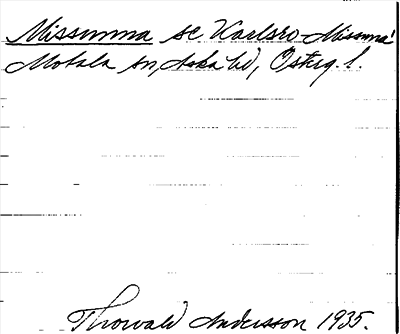 Missunna se Karlsro-Missunna
Motala sn, Aska hd, Österg. l.
Thorvald Andersson 1935.